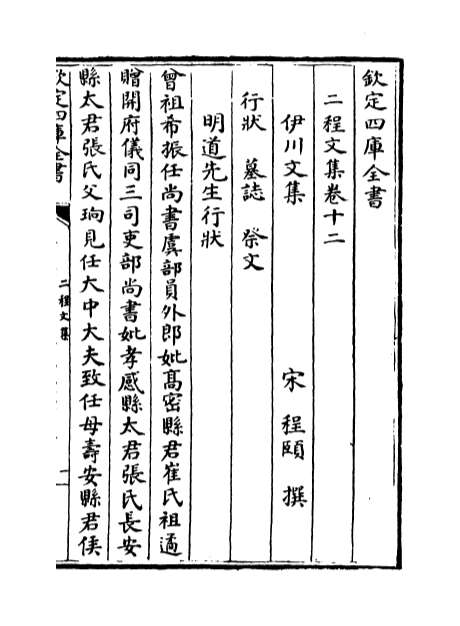 欽定四庫全書
二程文集卷十二
伊川文集 宋 程頤 撰
行狀 墓誌 祭文
明道先生行狀
曾祖希振任尚書虞部員外郎妣髙密縣君崔氏祖遹
贈開府儀同三司吏部尚書妣孝感縣太君張氏長安
縣太君張氏父珦見任大中大夫致任母壽安縣君侯
欽定四庫全書
二程文集